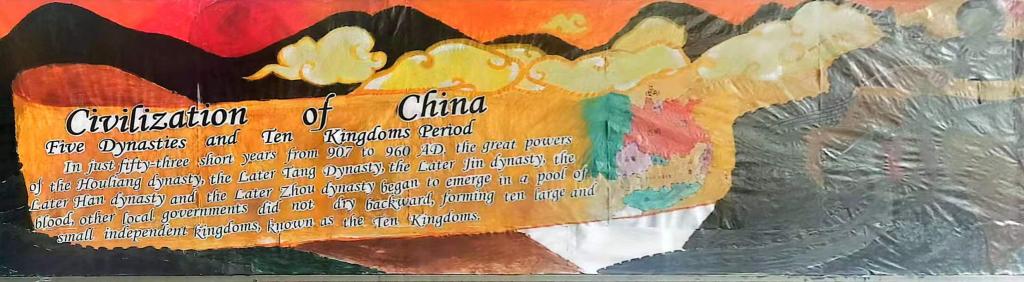 Civilization of China
Five Dynasties and Ten Kingdoms Period
In just fifty-three short years from 907 to 960 AD, the great powers
of the Houliang dynasty, the Later Tang Dynasty, the Later Jin dynasty, the
Later Han dynasty and the Later Zhou dynasty began to emerge in a pool of
blood, other local governments did not dry backward, forming ten large and
small independent kingdoms, known as the Ten Kingdoms.